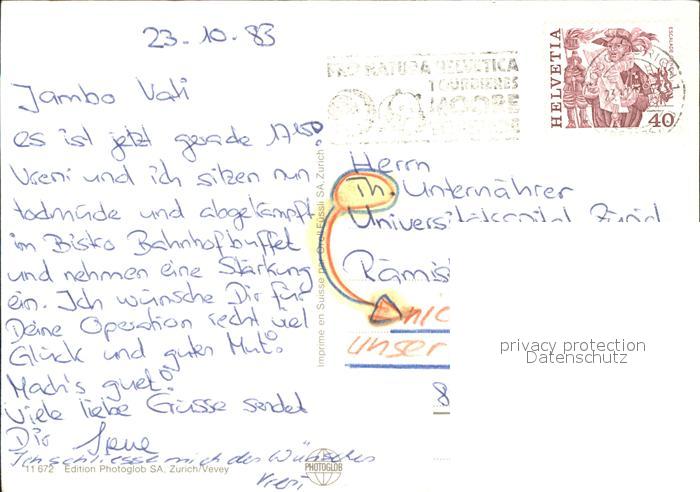 23.10.83
Jambo Vati
es ist jetzt gerade 1750
Vreni und ich sitzen nun
todmüde und abgekämpft
im Bistro Bahnhofbuffet
und nehmen eine Stärkung
ein. Ich wünsche Dir für
Deine Operation recht viel
Glück und guten Mut!
Mach's guet!
Viele liebe Grüsse sendet
Dir Irene
Ich schliesse mich den Wünschen
Vreni
11 672 Edition Photoglob SA, Zürich/Vevey
PHOTOGLOB
Imprimé en Suisse par Orell Füssli SA, Zürich
PRO NATURA HELVETICA
TOURBIERES
HELVETIA
ESCALADE
40
Herrn
Th. Unternährer
Universitätsspital Zürich
Rämis
unser
8
privacy protection
Datenschutz